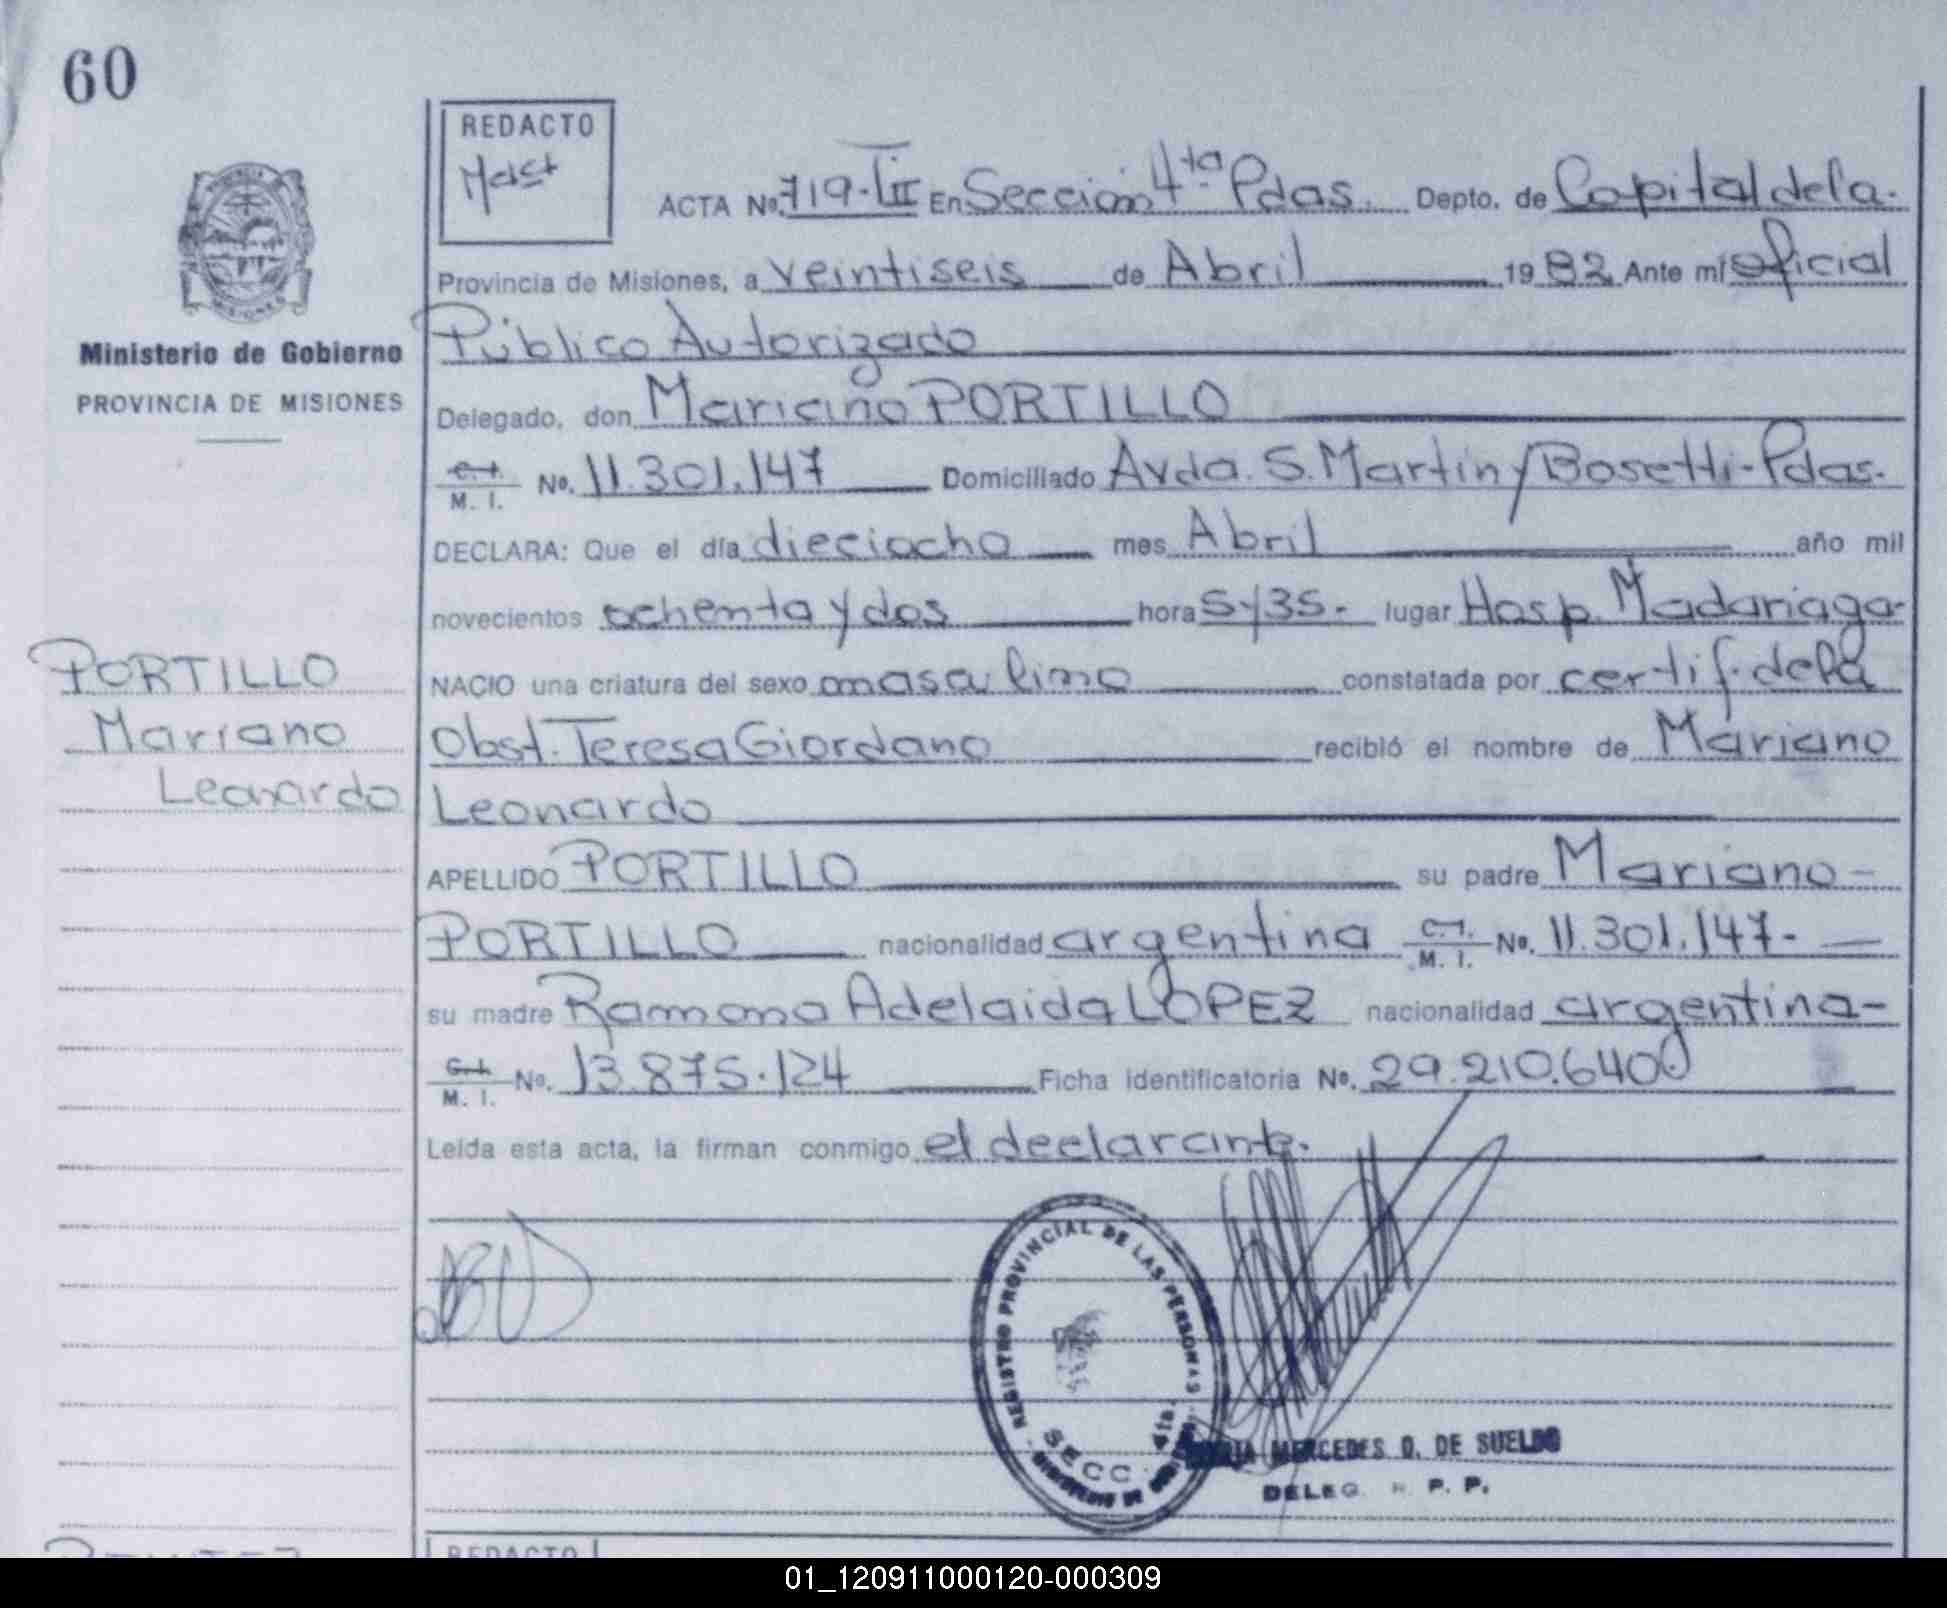 60
REDACTO
ACTA Nº. 719-III En Sección 4ta Pdas. Depto. de Capital de la.
Provincia de Misiones, a veintiseis de Abril 1982 Ante mí oficial
Público Autorizado
Ministerio de Gobierno
PROVINCIA DE MISIONES
Delegado, don Mariano PORTILLO
C.I. M. I. Nº. 11.301.147 Domiciliado Avda. S. Martin y Bosetti-Pdas.
DECLARA: Que el día dieciocho mes Abril año mil
novecientos ochenta y dos hora 5y35. lugar Hosp. Madariaga-
PORTILLO
Mariano
Leonardo
NACIO una criatura del sexo masculino constatada por certif. de la
Obst. Teresa Giordano recibió el nombre de Mariano
Leonardo
APELLIDO PORTILLO su padre Mariano-
PORTILLO nacionalidad argentina C.I. M. I. Nº. 11.301.147.-
su madre Ramona Adelaida LOPEZ nacionalidad argentina-
C.I. M. I. Nº. 13.875.124 Ficha identificatoria Nº. 29.210.640
Leída esta acta, la firman conmigo el declarante.
REGISTRO PROVINCIAL DE LAS PERSONAS
SECC. 4ta.
MERCEDES O. DE SUELDO
DELEG. R. P. P.
REDACTO
01_120911000120-000309